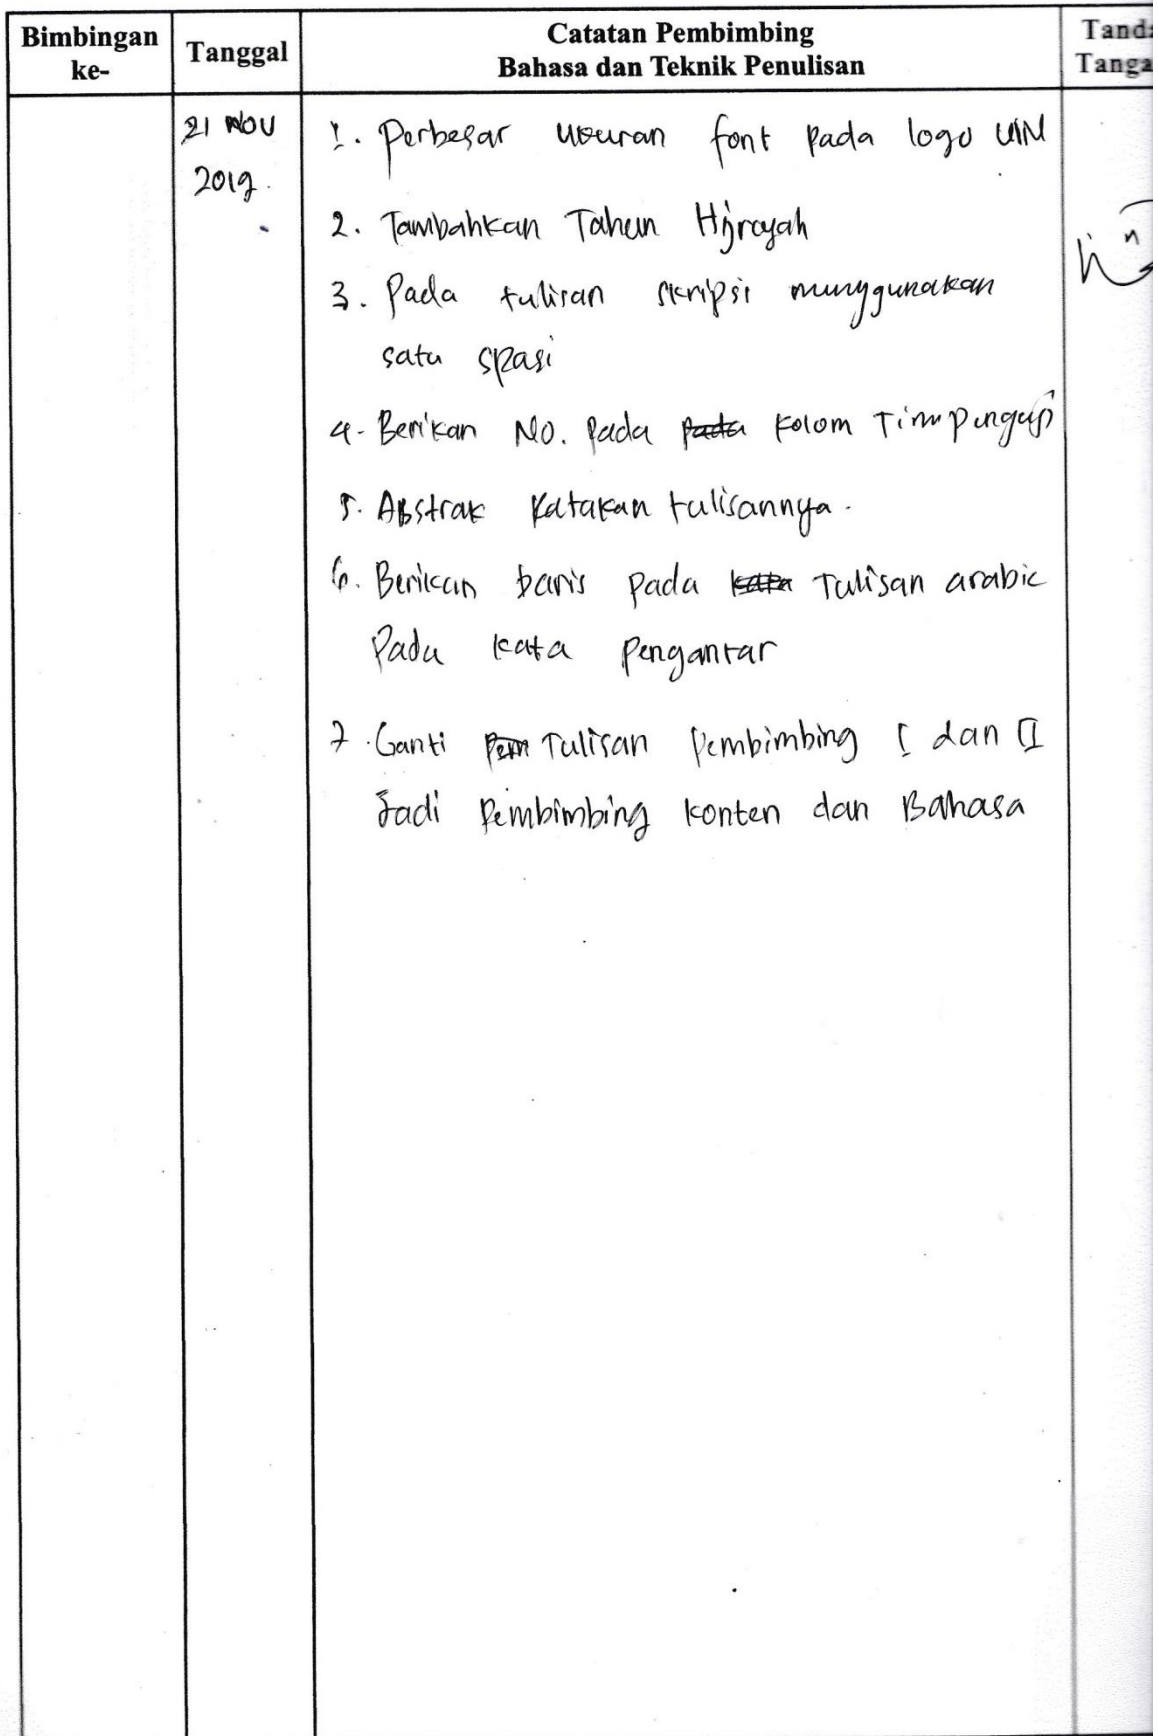 Bimbingan ke-
Tanggal
Catatan Pembimbing
Bahasa dan Teknik Penulisan
Tanda
Tanga
21 NOV
2019.
1. Perbesar ukuran font pada logo UIN
2. Tambahkan Tahun Hijrayah
3. Pada tulisan skripsi menggunakan
satu spasi
4. Berikan No. Pada pada Kolom Tim penguji
5. Abstrak Katakan tulisannya.
6. Berikan baris pada kata Tulisan arabic
Pada kata pengantar
7. Ganti Pem Tulisan Pembimbing I dan II
Jadi Pembimbing konten dan Bahasa